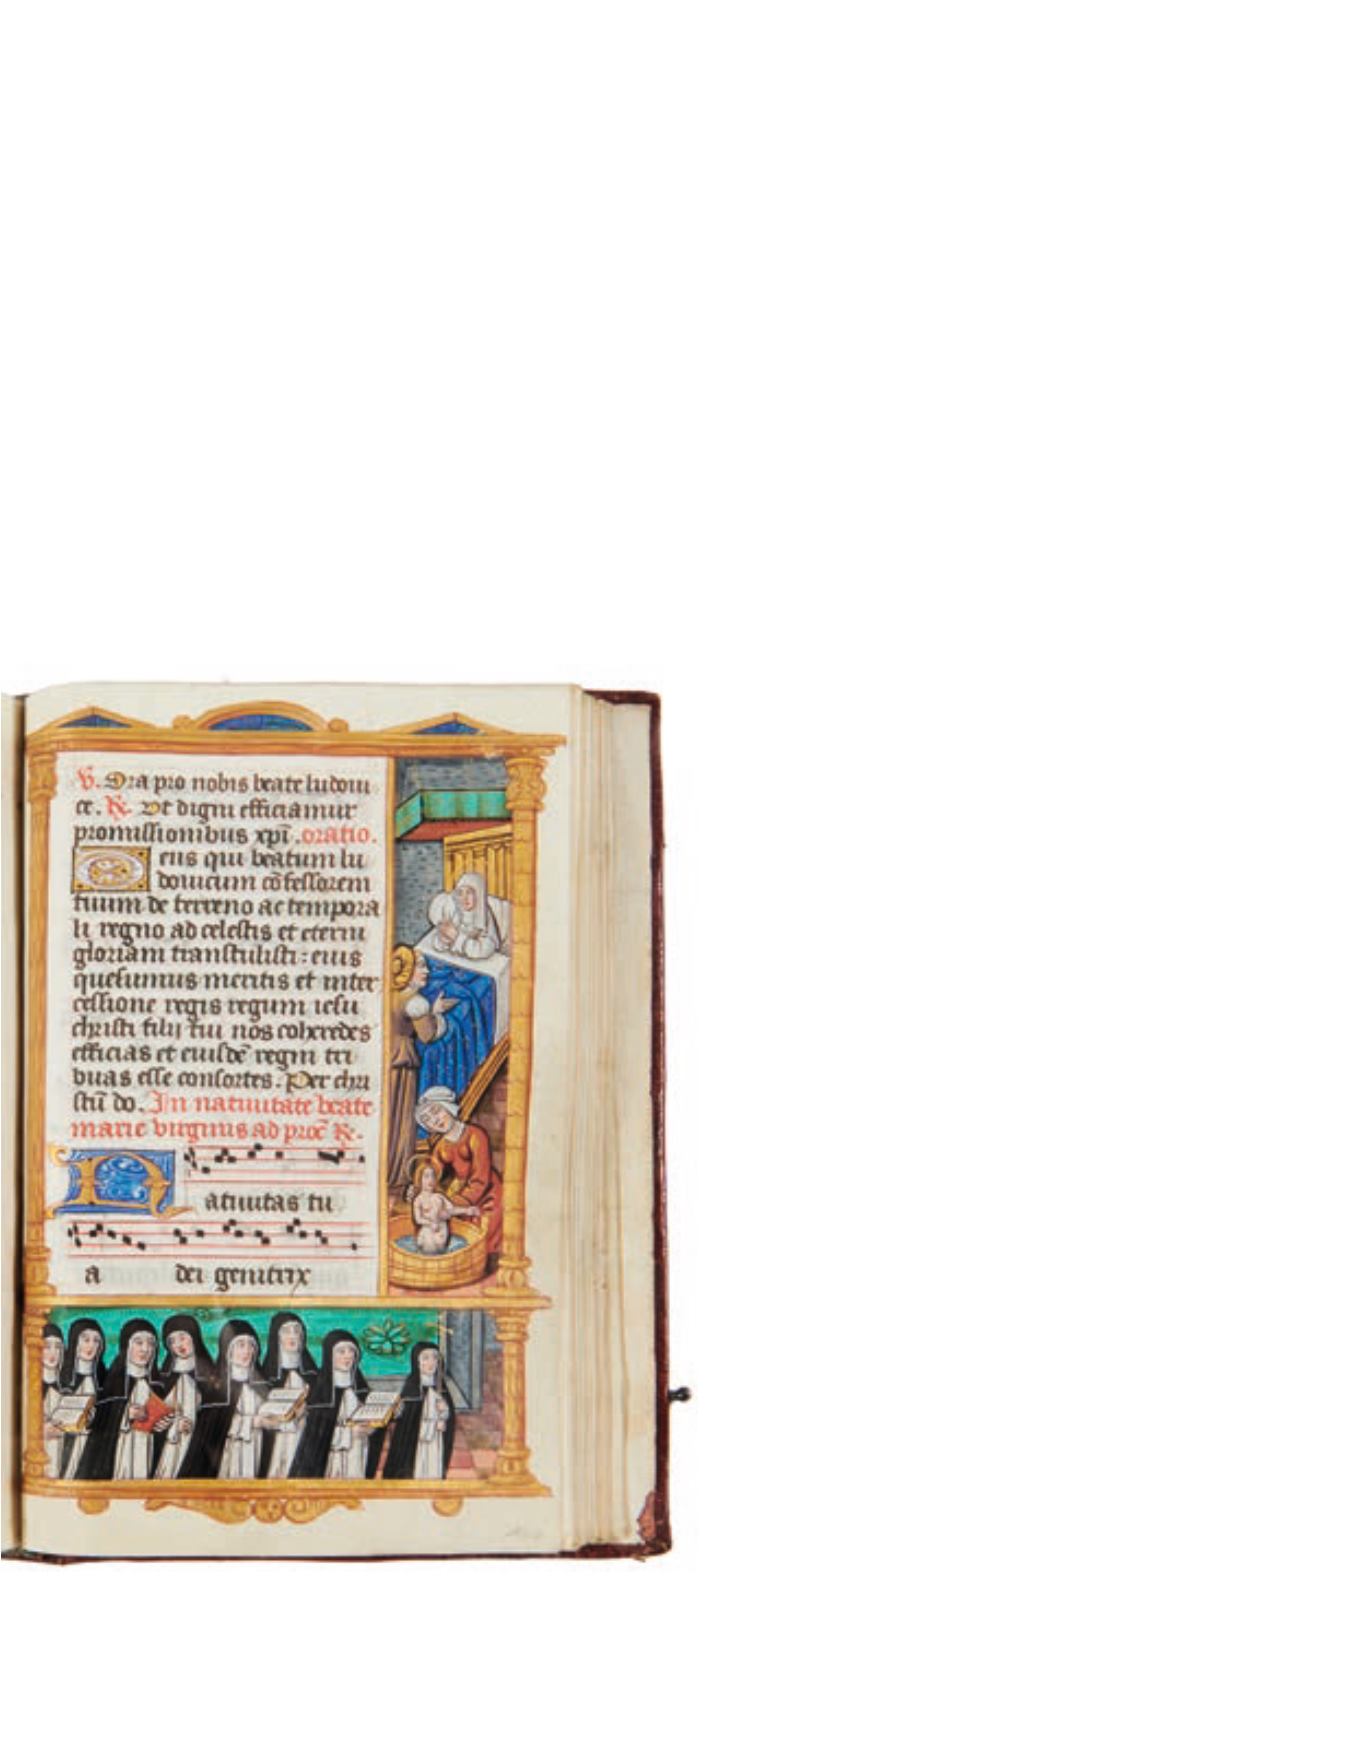 V. Ora pro nobis beate ludoui
ce. R. Ut digni efficiamur
promissionibus xpī. oratio.
Deus qui beatum lu
douicum cōfessorem
tuum de terreno ac tempora
li regno ad celestis et eterni
gloriam transtulisti: eius
quesumus meritis et inter
cessione regis regum iesu
christi filij tui nos coheredes
efficias et eiusdē regni tri
buas esse consortes. Per chri
stū do. In natiuitate beate
marie virginis ad procē R.
Natiuitas tu
a dei genitrix